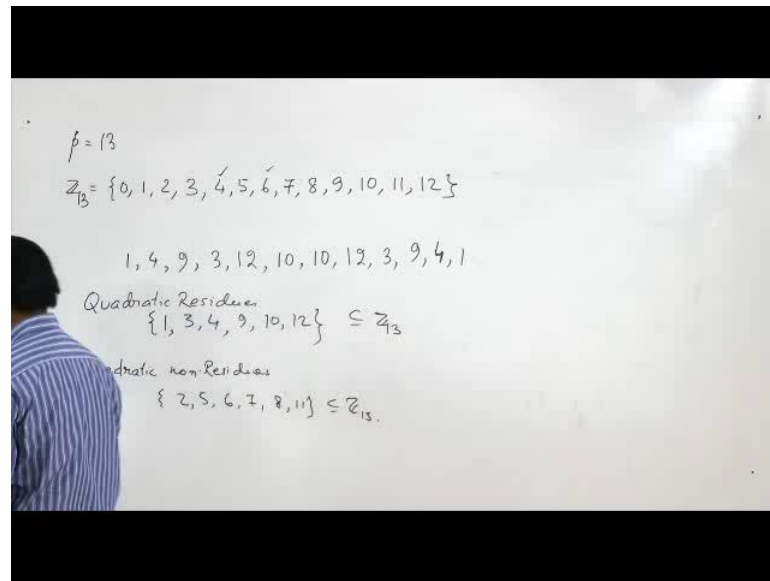 p = 13
Z₁₃ = {0, 1, 2, 3, 4, 5, 6, 7, 8, 9, 10, 11, 12}
1, 4, 9, 3, 12, 10, 10, 12, 3, 9, 4, 1
Quadratic Residues
{1, 3, 4, 9, 10, 12} ⊆ Z₁₃
dratic non-Residues
{2, 5, 6, 7, 8, 11} ⊆ Z₁₃.